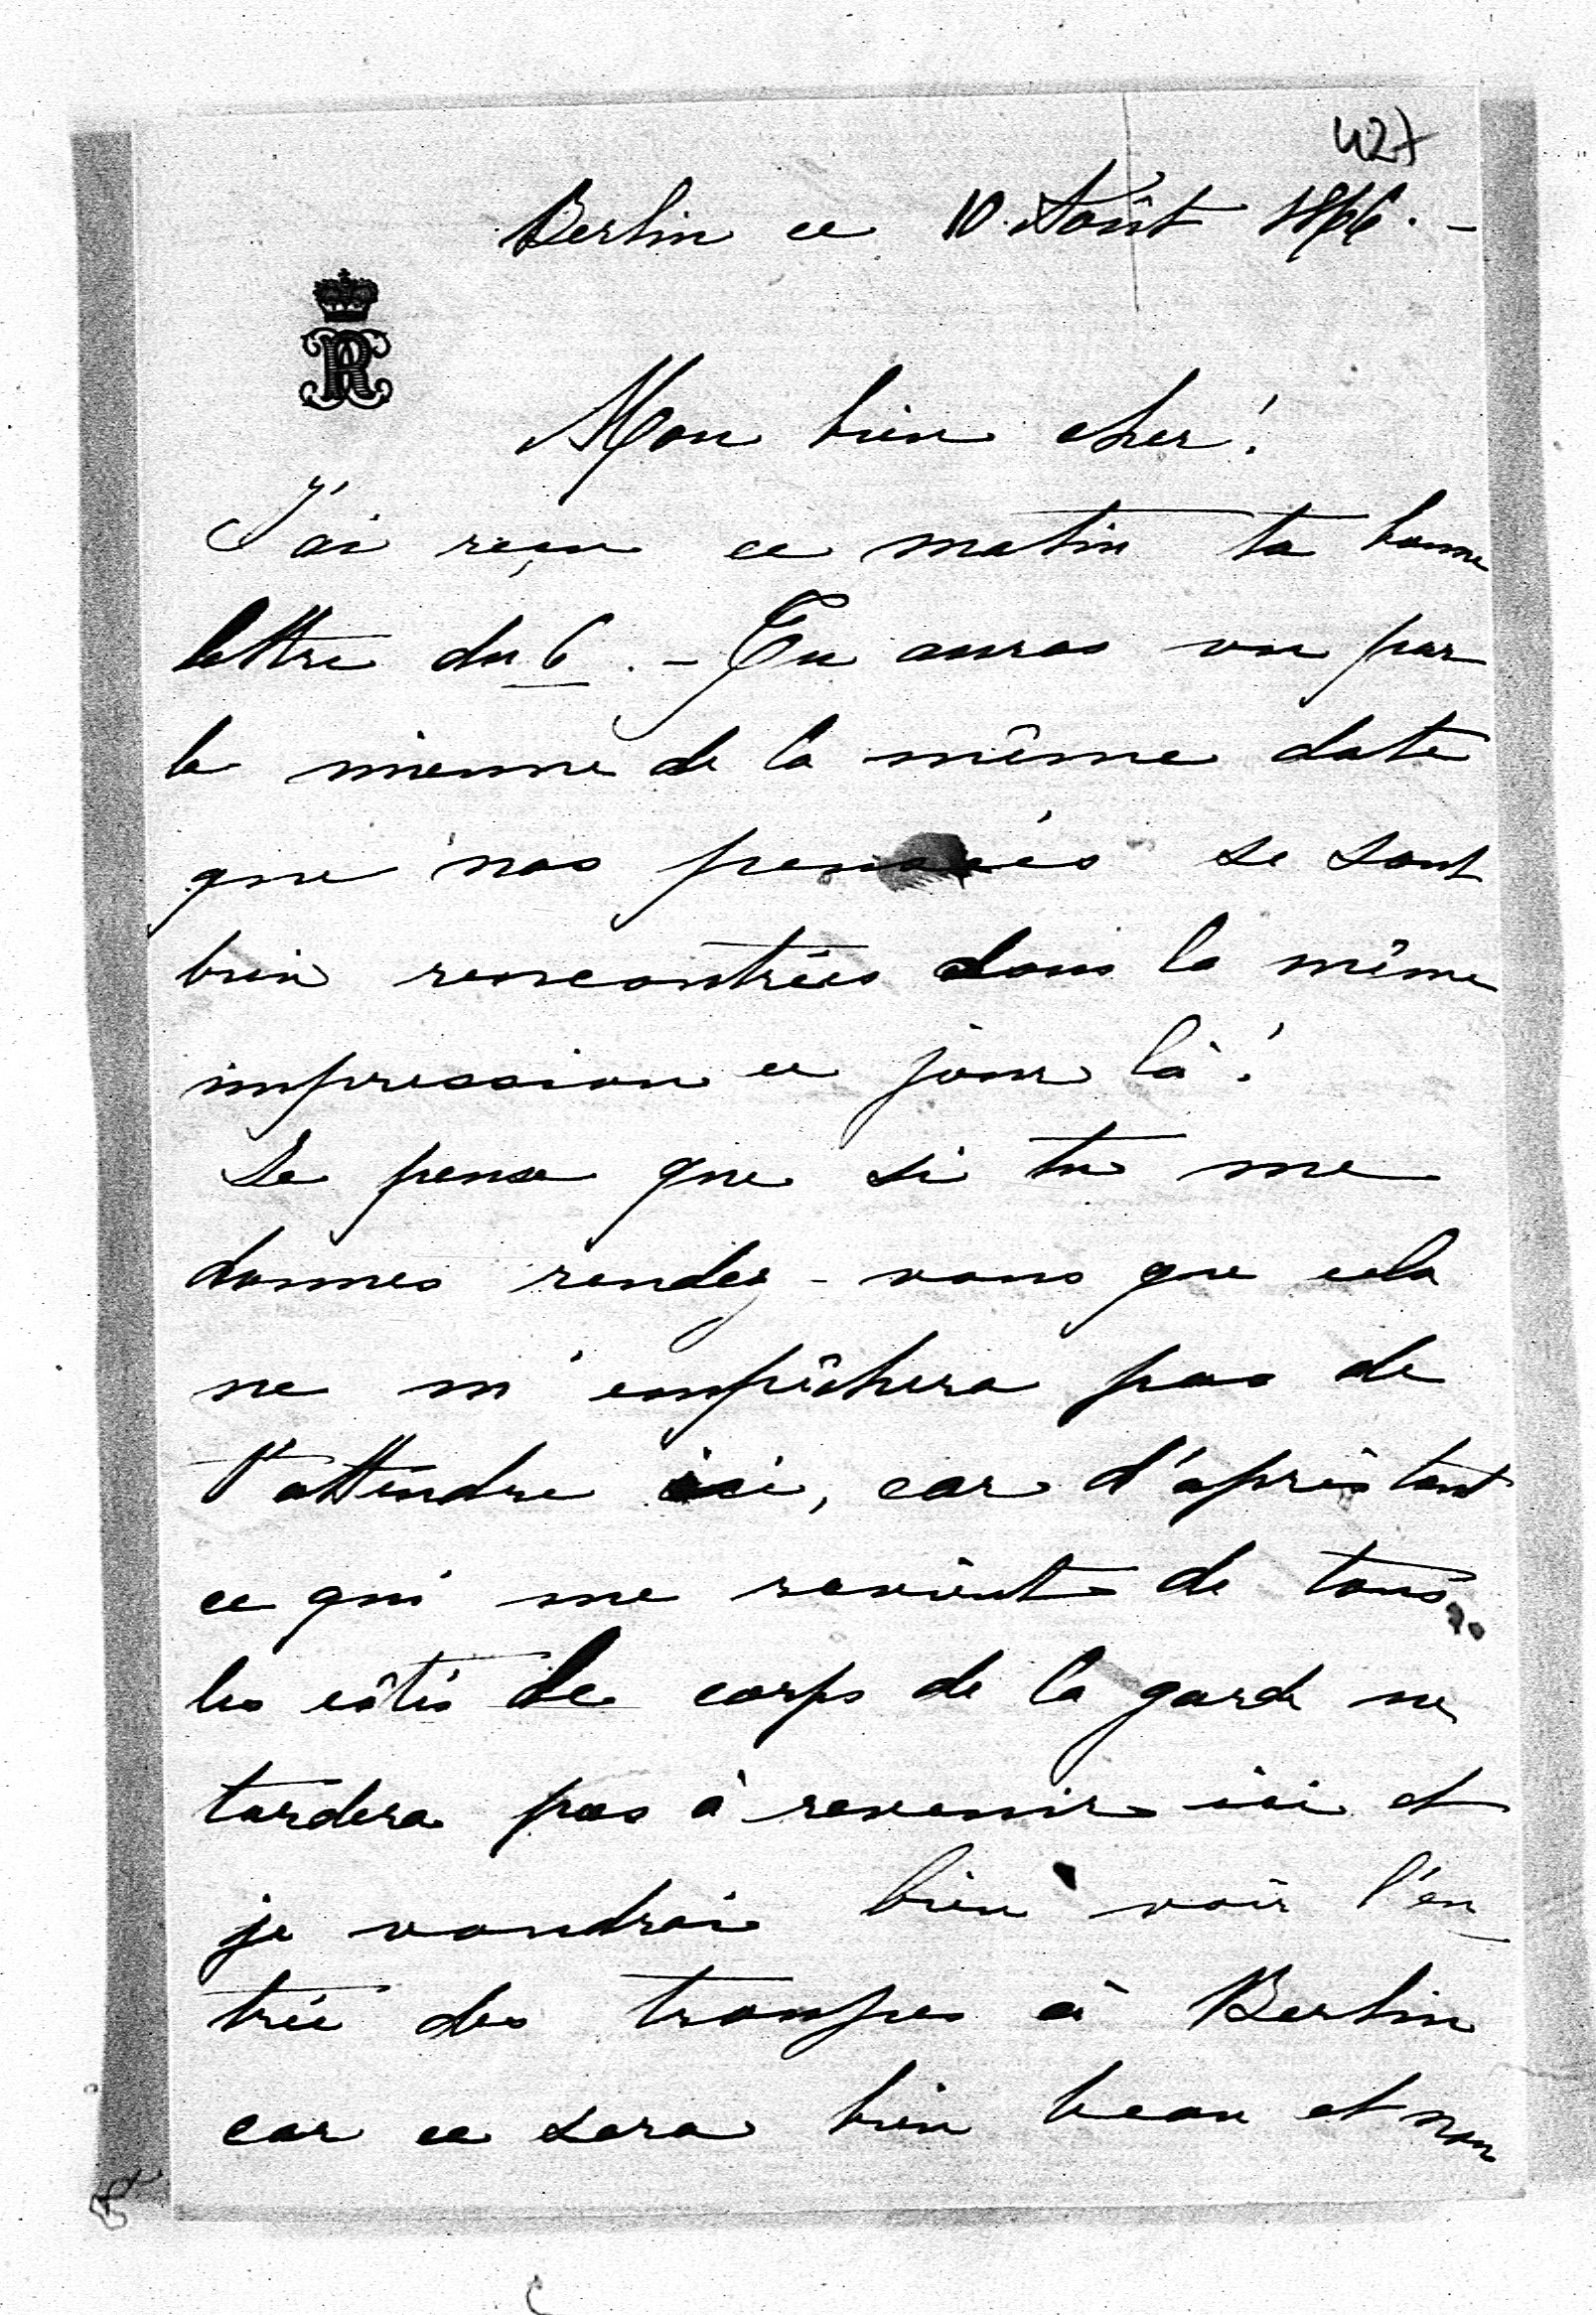 427
Berlin ce 10. Août 1866. -
Mon bien cher!
J'ai reçu ce matin ta bonne
lettre du 6. - Tu auras vu par
la mienne de la même date
que nos pensées se sont
bien rencontrées dans la même
impression ce jour là!
Je pense que si tu me
donnes rendez-vous que cela
ne m'empêchera pas de
t'attendre ici, car d'après tout
ce qui me revient de tous
les côtés le corps de la garde ne
tardera pas à revenir ici et
je voudrai bien voir l'en
trée des troupes à Berlin
car ce sera bien beau et non